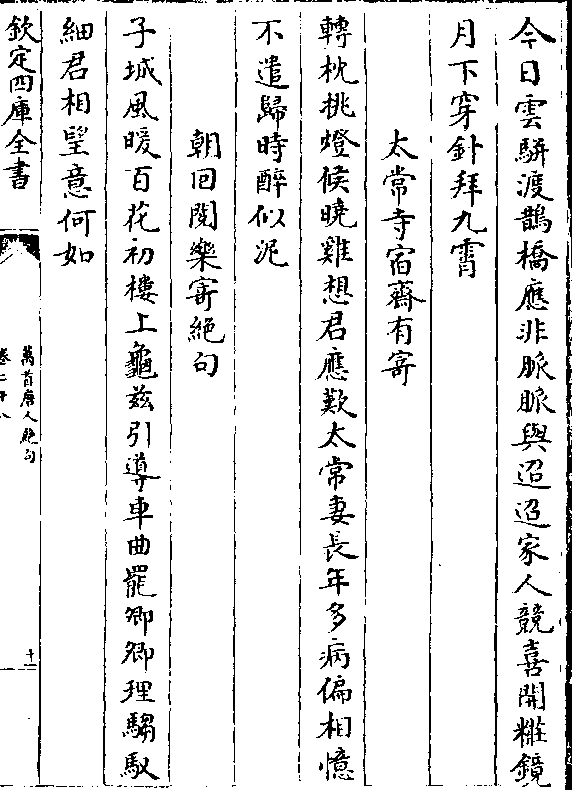 今日雲駢渡鵲橋應非脈脈與迢迢家人競喜開糚鏡
月下穿針拜九霄
太常寺宿齋有寄
轉枕挑燈候曉雞想君應歎太常妻長年多病偏相憶
不遣歸時醉似泥
朝回閱樂寄絶句
子城風暖百花初樓上龜兹引導車曲罷卿卿理騶馭
細君相望意何如
欽定四庫全書
萬首唐人絶句
卷二十八
十一